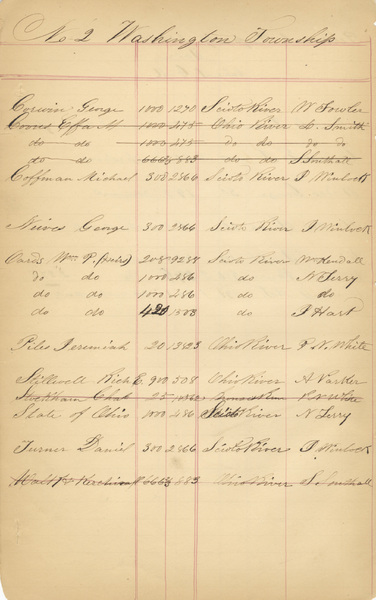 No 2 Washington Township
Corwin George 1000 1270 Scioto River W Fowler
Corres Effa M 1000 475 Ohio River L. Smith
do do 1000 475 do do do do
do do 666⅔ 883 do do S Southall
Coffman Michael 308 2866 Scioto River T Winlock
Nieves George 300 2866 Scioto River T Winlock
Wm P. 208 9288 Scioto River Wm Kendall
do do 1000 486 do N Terry
do do 1000 486 do do
do do 420 1503 do J Hart
Piles Jeremiah 20 13523 Ohio River P N. White
Stillwell Rich E 900 508 Ohio River A Parker
Stockham Chas 25
State of Ohio 1000 486 Scioto River N Terry
Turner Daniel 300 2866 Scioto River T Winlock
666⅔ 883 Ohio River S. Southall